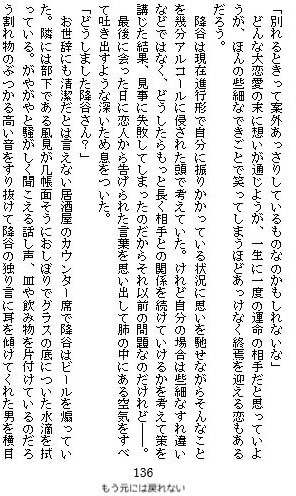 「別れるときって案外あっさりしているものなのかもしれないな」
　どんな大恋愛の末に想いが通じようが、一生に一度の運命の相手だと思っていよ
うが、ほんの些細なできごとで笑ってしまうほどあっけなく終焉を迎える恋もある
だろう。
　降谷は現在進行形で自分に振りかかっている状況に思いを馳せながらそんなこと
を幾分アルコールに侵された頭で考えていた。けれど自分の場合は些細なすれ違い
などではなく、どうしたらもっと長く相手との関係を続けていけるかを考えて策を
講じた結果、見事に失敗してしまったのだからそれ以前の問題なのだけれど――。
　最後に会った日に恋人から告げられた言葉を思い出して肺の中にある空気をすべ
て吐き出すような深いため息をついた。
「どうしました降谷さん？」
　お世辞にも清潔だとは言えない居酒屋のカウンター席で降谷はビールを煽ってい
た。隣には部下である風見が几帳面そうにおしぼりでグラスの底についた水滴を拭
っている。がやがやと騒がしく聞こえる話し声、皿や飲み物を片付けているのだろ
う割れ物のぶつかる高い音をすり抜けて降谷の独り言に耳を傾けてくれた男を横目
136
もう元には戻れない